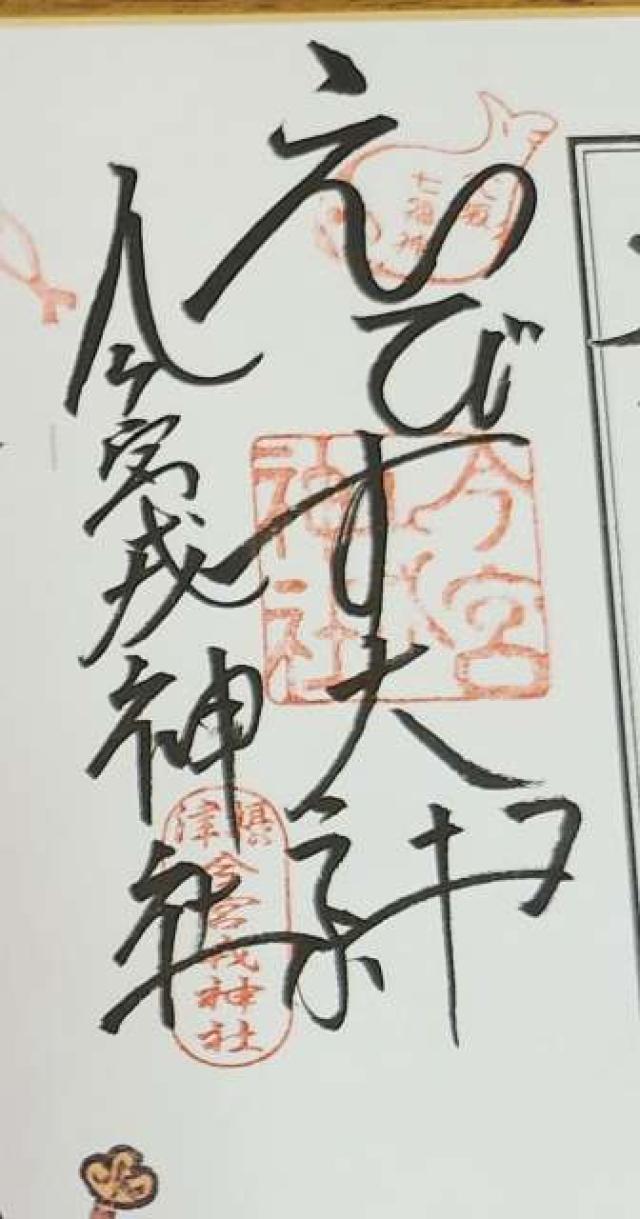 えびす大神
今宮戎神社
七福神
今宮
神社
今宮戎神社